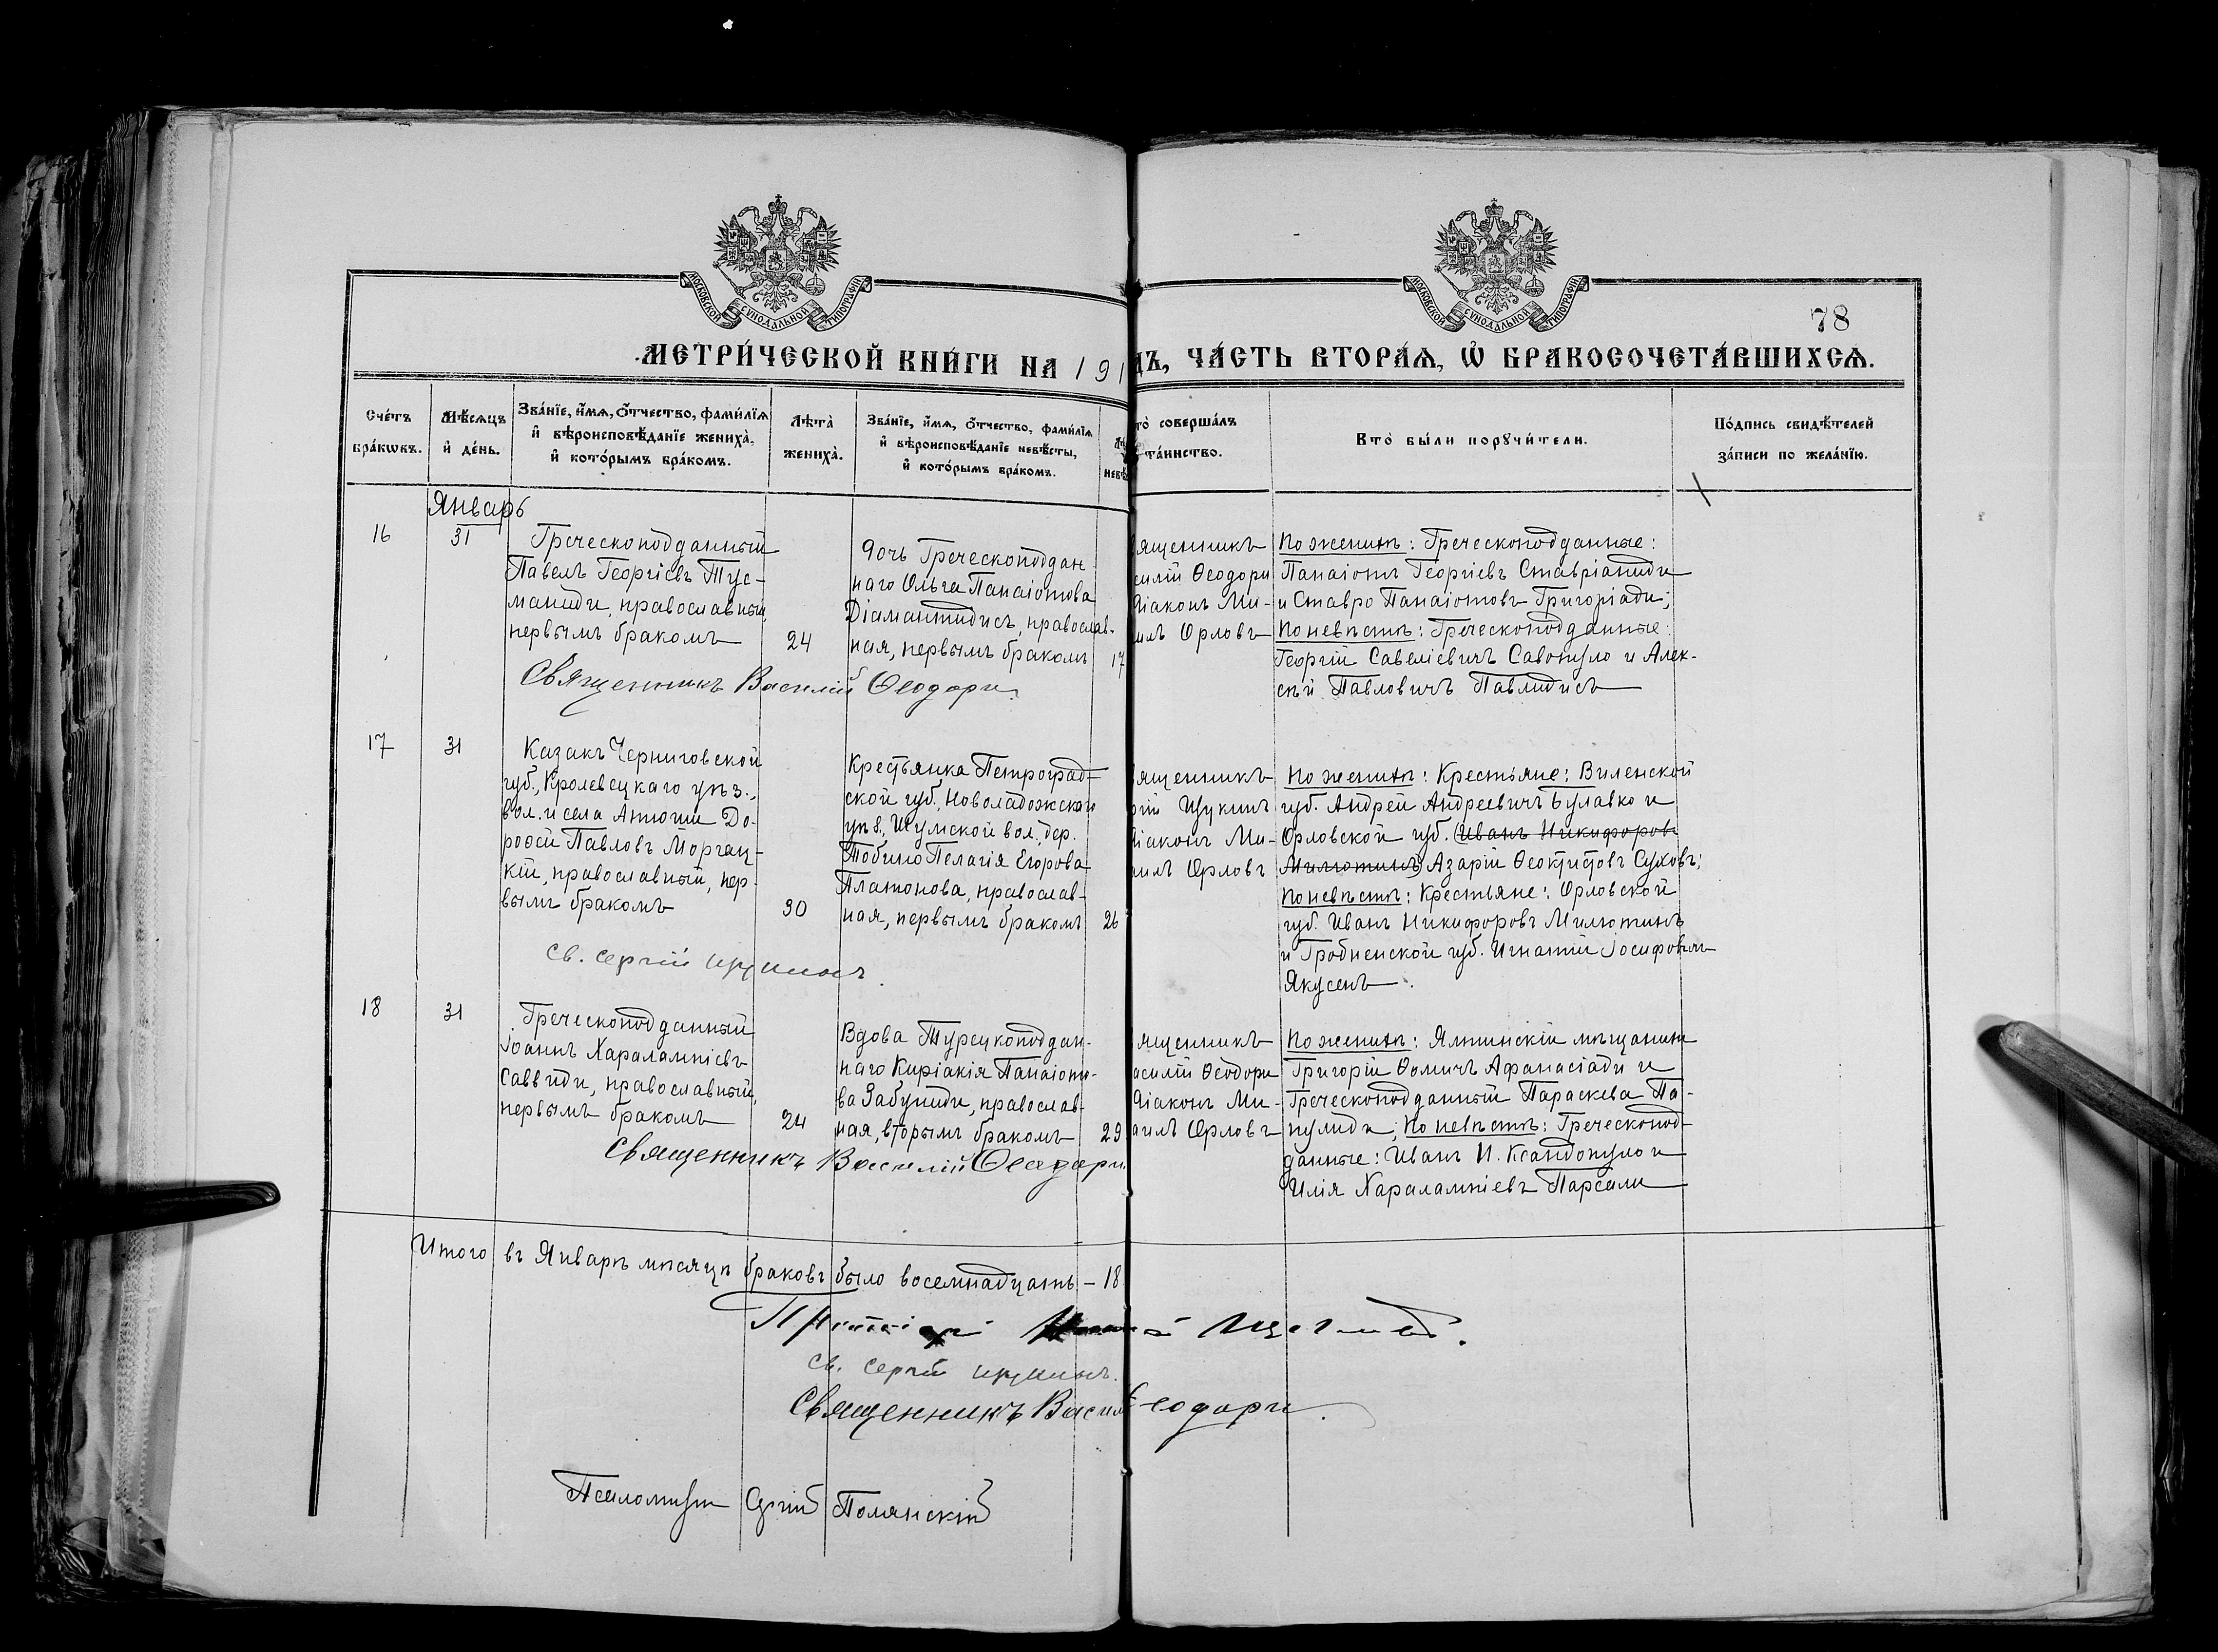 МОСКОВСКОЙ СѴНОДАЛЬНОЙ ТИПОГРАФІИ
МОСКОВСКОЙ СѴНОДАЛЬНОЙ ТИПОГРАФІИ
78
МЕТРИ́ЧЕСКОЙ КНИ́ГИ НА 191
ДЪ, ЧА́СТЬ ВТОРА́Ѧ, Ѡ҆ БРАКОСОЧЕТА́ВШИХСѦ.
Сче́тъ
бра́кѡвъ.
Мѣ́сѧцъ
и҆ де́нь.
Зва́нїе, и҆́мѧ, ѻ҆́тчество, фами́лїѧ
и҆ вѣроисповѣ́данїе жениха̀,
и҆ кото́рымъ бра́комъ.
Лѣта̀
жениха̀.
Зва́нїе, и҆́мѧ, ѻ҆́тчество, фами́лїѧ
и҆ вѣроисповѣ́данїе невѣ́сты,
и҆ кото́рымъ бра́комъ.
Лѣ
невѣ
то̀ соверша́лъ
та́инство.
Кто̀ бы́ли порꙋчи́тели.
По́дпись свидѣ́телей
за́писи по жела́нїю.
Январь
16
31
Греческоподданный
Павелъ Георгіевъ Тус-
маниди, православный,
первымъ бракомъ
24
Дочь Греческоподдан-
наго Ольга Панаіотова
Діамантидисъ, православ-
ная, первымъ бракомъ
17
ященникъ
силій Ѳеодори
діаконъ Ми-
илъ Орловъ
По женихѣ: Греческоподданные:
Панаіотъ Георгіевъ Ставріаниди
и Ставро Панаіотовъ Григоріади;
По невѣстѣ: Греческоподданные:
Георгій Савеліевичъ Савопуло и Алек-
сѣй Павловичъ Павлидисъ
Священникъ Василій Ѳеодори.
17
31
Казакъ Черниговской
губ., Кролевецкаго уѣз.,
вол. и села Алтыши До-
роѳей Павловъ Моргац-
кій, православный, пер-
вымъ бракомъ
30
Крестьянка Петроград-
ской губ., Новоладожскаго
уѣз., Шумской вол., дер.
Тобино Пелагія Егорова
Платонова, православ-
ная, первымъ бракомъ
26
ященникъ
ргій Щукинъ
діаконъ Ми-
илъ Орловъ
По женихѣ: Крестьяне: Виленской
губ. Андрей Андреевичъ Булавко и
Орловской губ. (Иванъ Никифоровъ
Милютинъ) Азарій Ѳеоктистовъ Суховъ;
По невѣстѣ: Крестьяне: Орловской
губ. Иванъ Никифоровъ Милютинъ
и Гродненской губ. Игнатій Іосифовичъ
Якусенъ.
Св. Сергій Щукинъ.
18
31
Греческоподданный
Іоаннъ Харалампіевъ
Саввиди, православный,
первымъ бракомъ
24
Вдова Турецкоподдан-
наго Киріакія Панаіото-
ва Забуниди, православ-
ная, вторымъ бракомъ
29
ященникъ
асилій Ѳеодори
діаконъ Ми-
аилъ Орловъ
По женихѣ: Ялтинскій мѣщанинъ
Григорій Ѳомичъ Афанасіади и
Греческоподданный Параскева Па-
пулиди; По невѣстѣ: Греческопод-
данные: Иванъ И. Ксандопуло и
Илія Харалампіевъ Парсали
Священникъ Василій Ѳеодори.
Итого въ Январѣ мѣсяцѣ браковъ было восемнадцать – 18
Св. Сергій Щукинъ.
Священникъ Васил еодори.
Псаломщ Сергій Полянскій